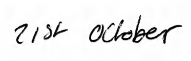 21st October